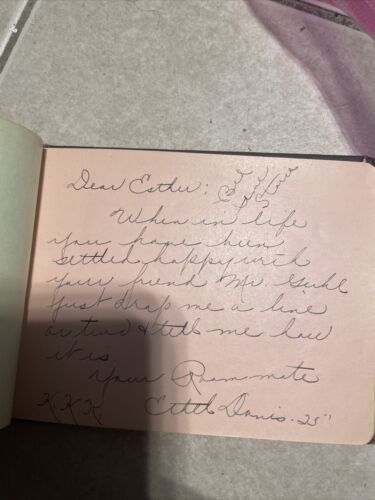 Dear Esther:
When in life
you have been
settled happy with
your friend Mr. Guhl
Just drop me a line
or two & tell me how
it is.
Your Roommate
K.K.K. Ethel Davis - 25"